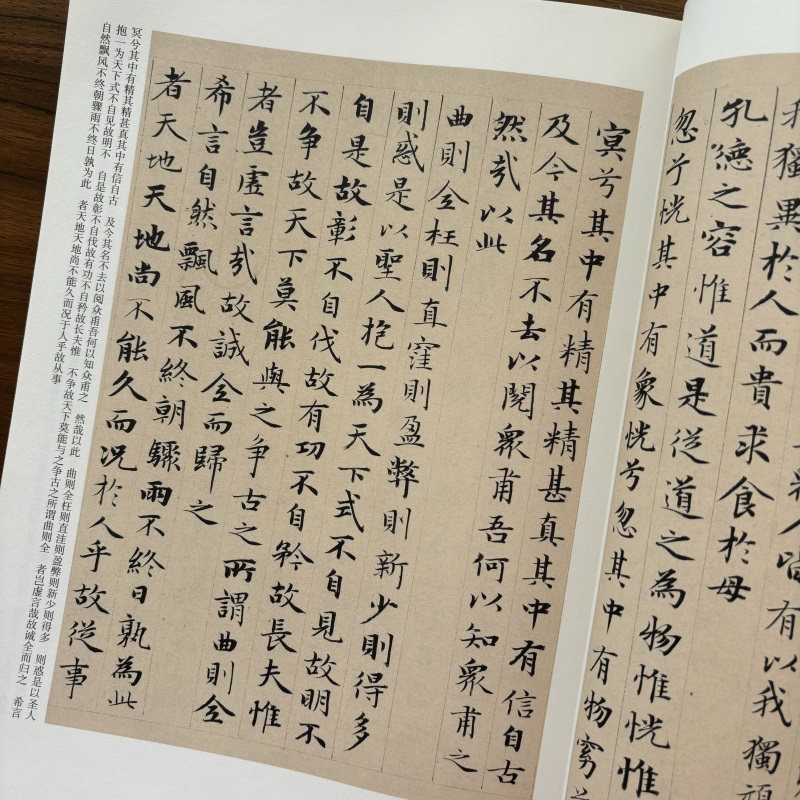 人皆有以我獨頑
我獨異於人而貴求食於母
孔德之容惟道是從道之為物惟恍惟
忽兮恍其中有象恍兮忽其中有物窈兮
冥兮其中有精其精甚真其中有信自古
及今其名不去以閱衆甫吾何以知衆甫之
然哉以此
曲則全枉則直窪則盈弊則新少則得多
則惑是以聖人抱一為天下式不自見故明不
自是故彰不自伐故有功不自矜故長夫惟
不争故天下莫能與之争古之所謂曲則全
者豈虛言哉故誠全而歸之
希言自然飄風不終朝驟雨不終日孰為此
者天地天地尚不能久而况於人乎故從事
冥兮其中有精其精甚真其中有信自古 及今其名不去以阅众甫吾何以知众甫之 然哉以此 曲则全枉则直洼则盈弊则新少则得多 则惑是以圣人
抱一为天下式不自见故明不 自是故彰不自伐故有功不自矜故长夫惟 不争故天下莫能与之争古之所谓曲则全 者岂虚言哉故诚全而归之 希言
自然飘风不终朝骤雨不终日孰为此 者天地天地尚不能久而况于人乎故从事